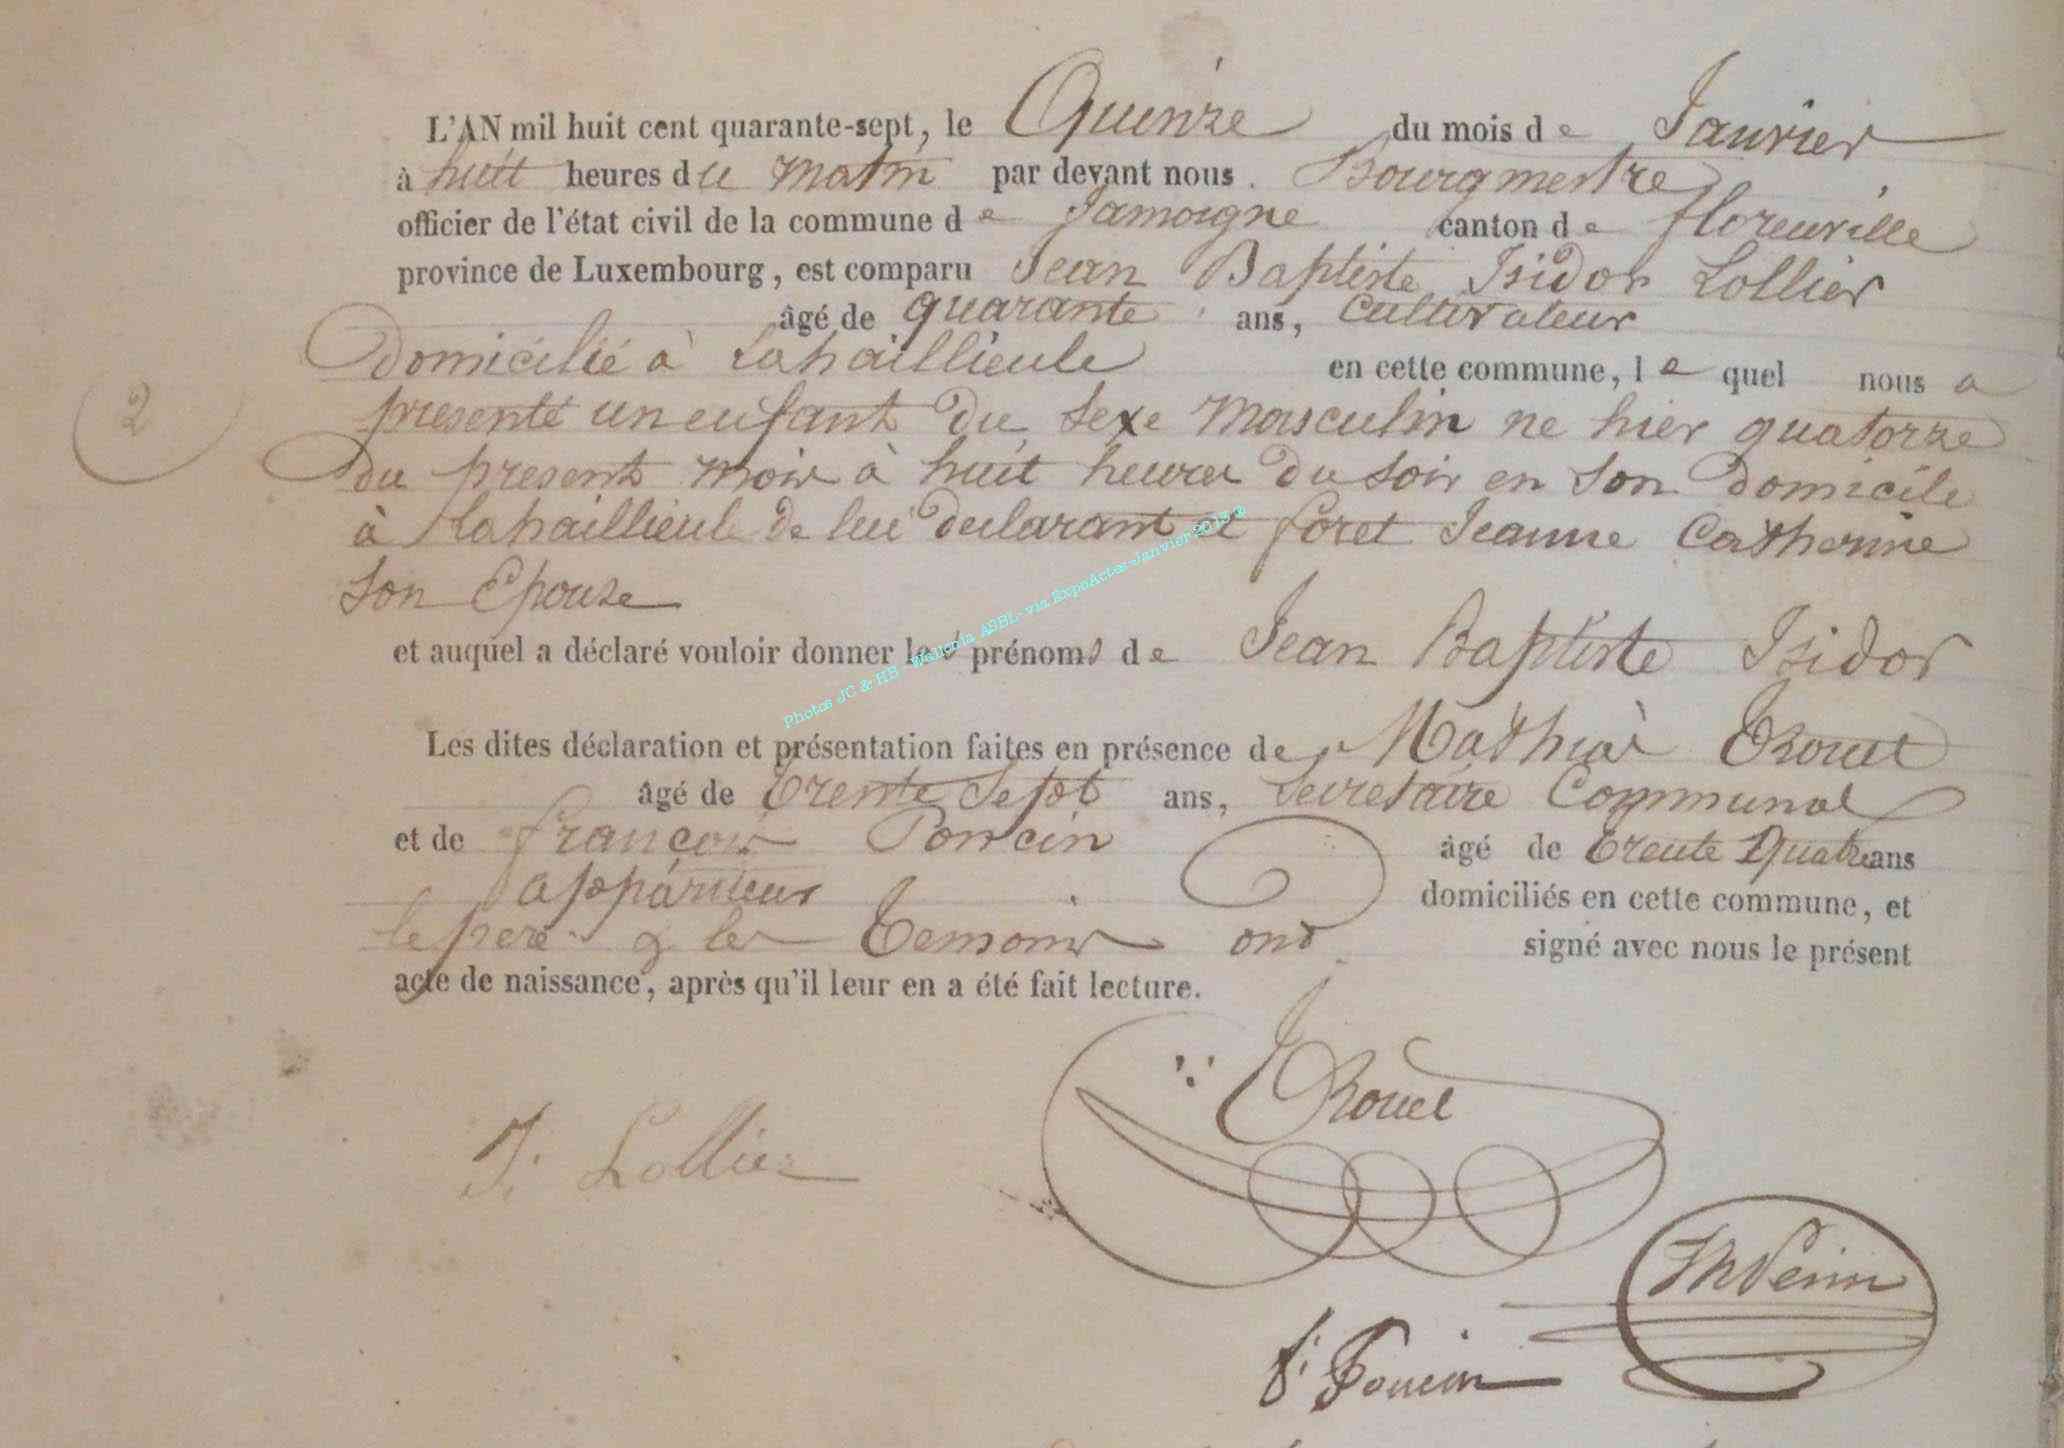 L'AN mil huit cent quarante-sept, le Quinze du mois de Janvier
à huit heures du matin par devant nous. Bourgmestre
officier de l'état civil de la commune de Jamoigne canton de florenville
province de Luxembourg, est comparu Jean Baptiste Isidor Lollier
âgé de quarante ans, Cultivateur
domicilié à Lahaillieule en cette commune, le quel nous a
2
presenté un enfant du sexe masculin ne hier quatorze
du present mois à huit heures du soir en son domicile
à Lahaillieule de lui declarant et foret Jeanne Catherine
son Epouse
et auquel a déclaré vouloir donner les prénoms de Jean Baptiste Isidor
Les dites déclaration et présentation faites en présence de Mathias
âgé de trente sept ans, Secretaire Communal
et de françois Poncin âgé de trente Quatre ans
appariteur domiciliés en cette commune, et
le pere & les temoins ont signé avec nous le présent
acte de naissance, après qu'il leur en a été fait lecture.
J. Lollier
f. Poncin
Photos JC & HB - Wallonia ASBL - via ExpoActes-Janvier 2015 ®